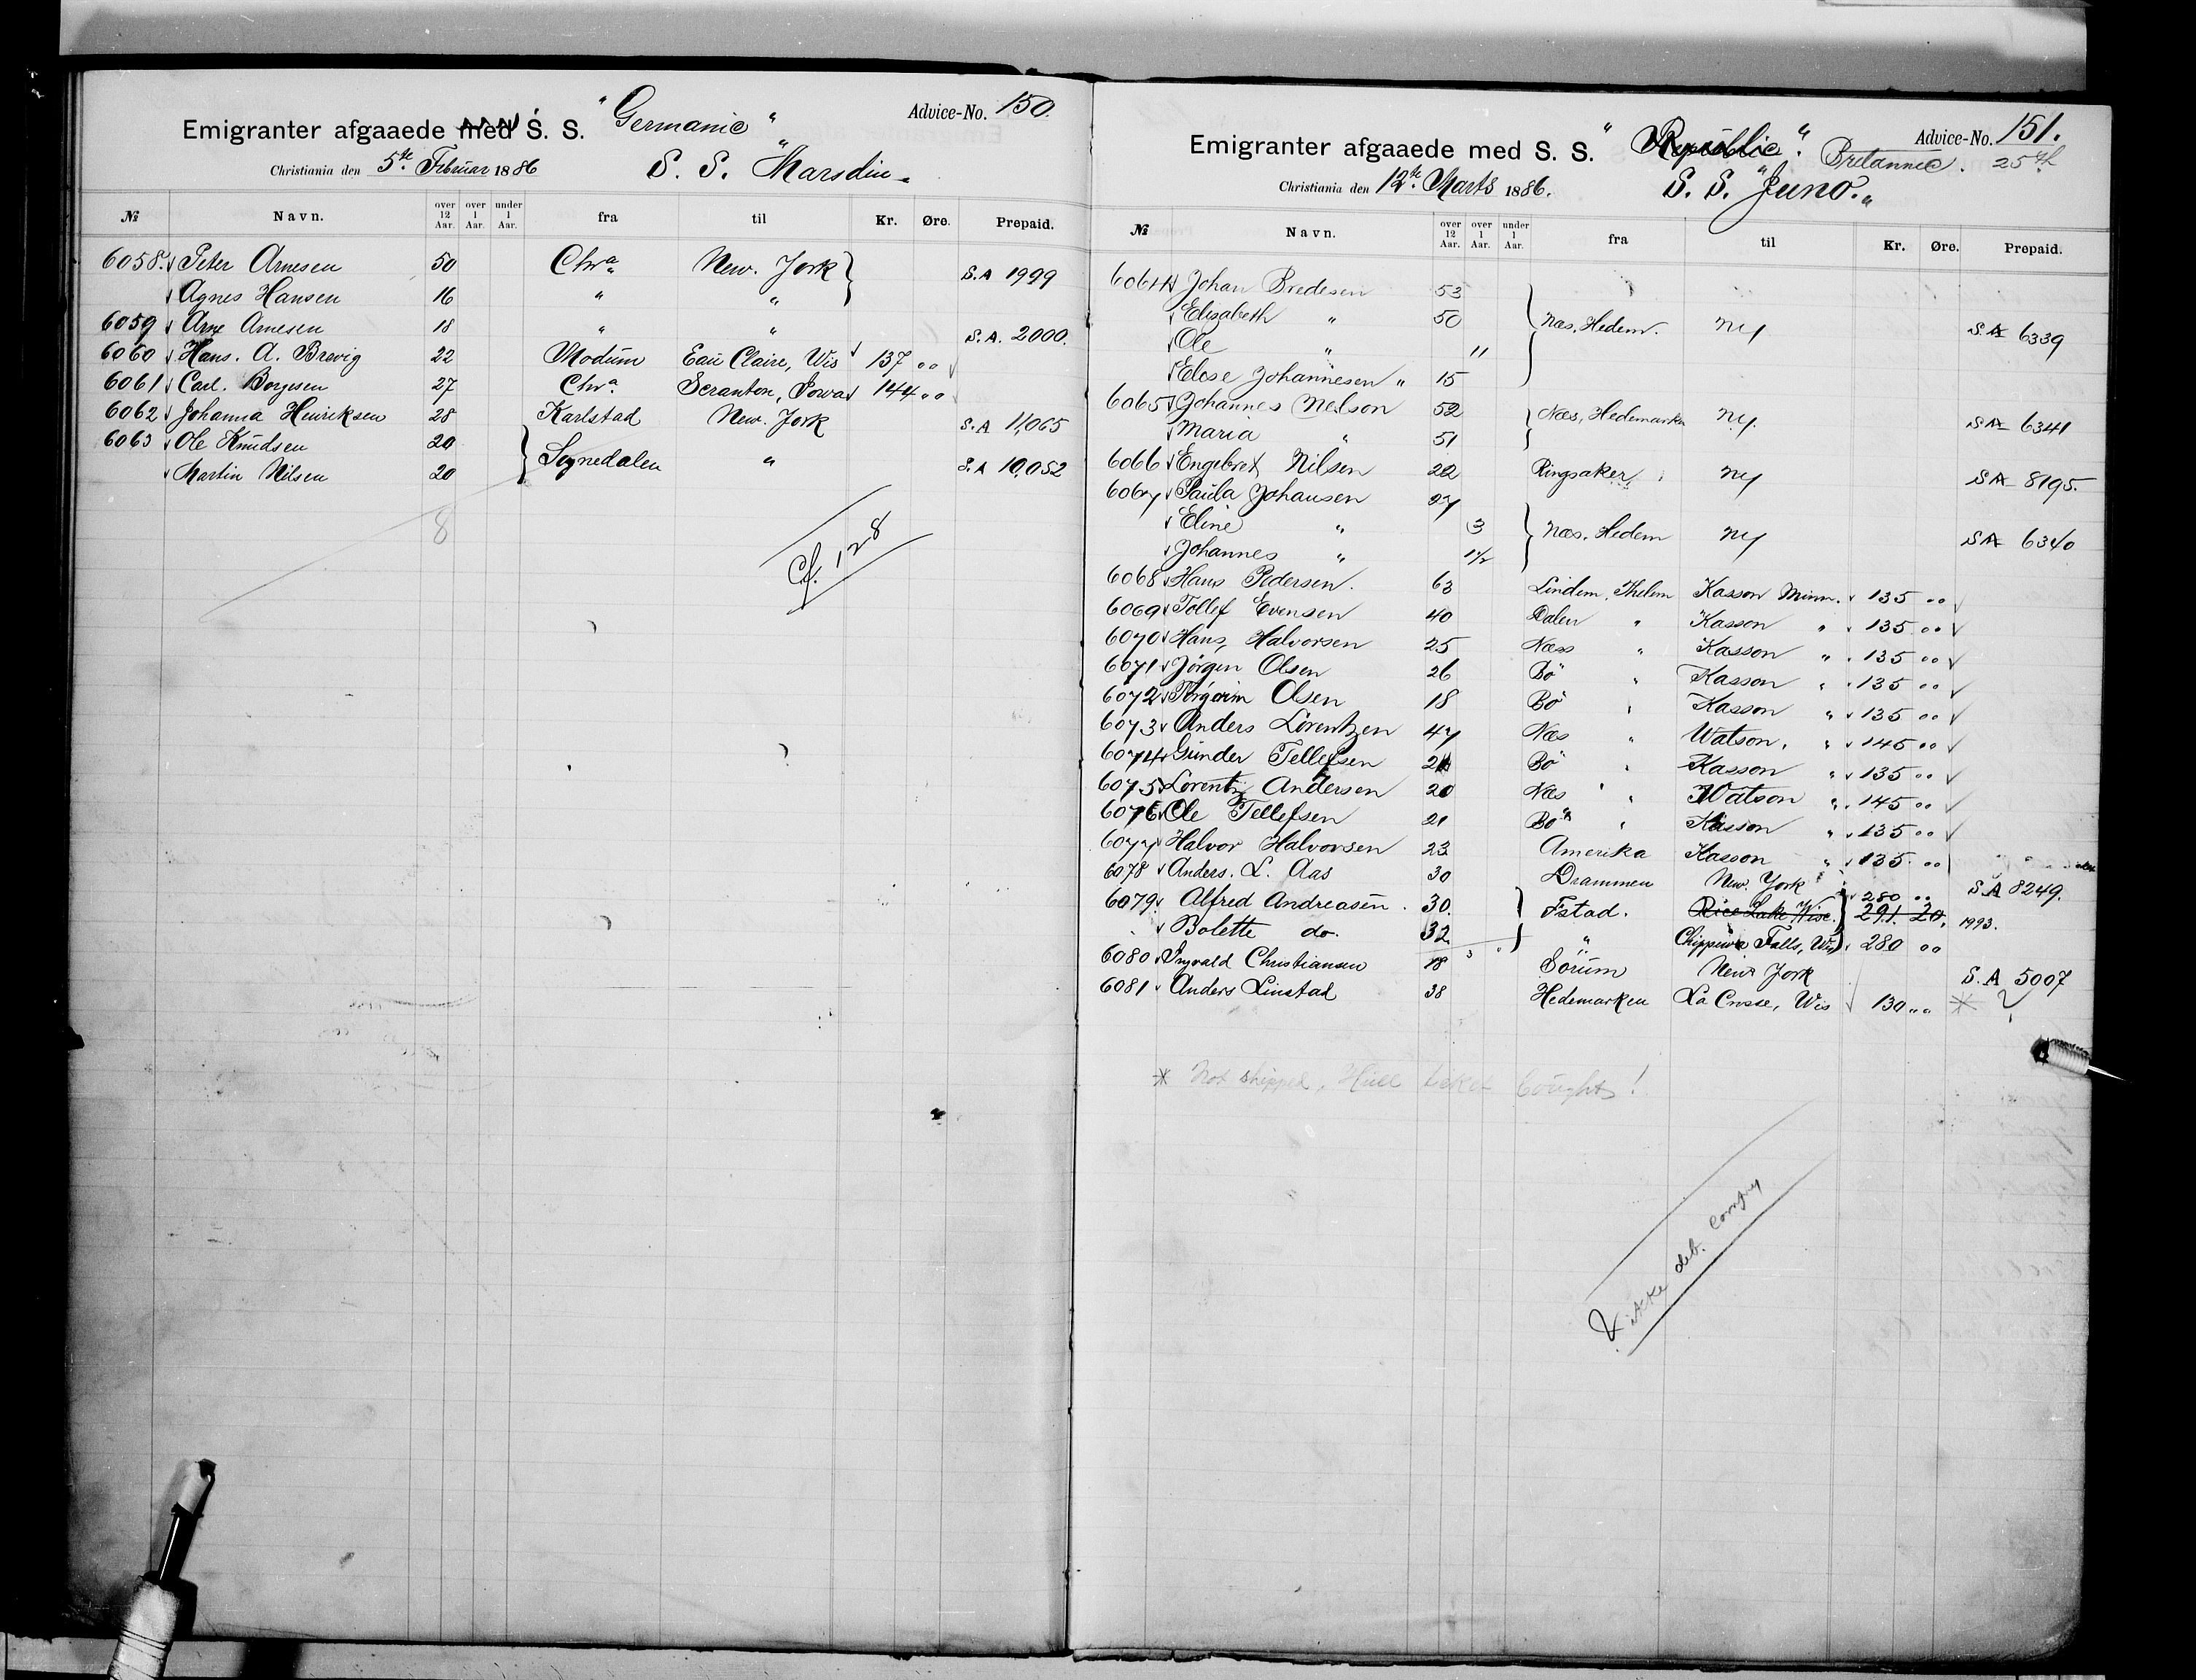 Advice-No. 150.
Emigranter afgaaede med S. S. "Germanic"
Christiania den 5te Februar 1886 S. S. "Marsdin"
№ Navn. over 12 Aar. over 1 Aar. under 1 Aar. fra til Kr. Øre. Prepaid.
6058. Peter Arnesen 50 Chra New. York } S.A 1999
Agnes Hansen 16 " "
6059 Arne Arnesen 18 " " S.A. 2000.
6060 Hans. A. Brevig 22 Modum Eau Claire, Wis 137 ""
6061 Carl. Borgesen 27 Chra. Scranton, Iowa 144 ""
6062 Johanna Henriksen 28 Karlstad New. York S.A 11,065
6063 Ole Knudsen 20 } Sognedalen " S.A 10,052
Martin Nilsen 20
8
Cf. 128
Advice-No. 151.
Emigranter afgaaede med S. S. "Republic". Britannic. 25th
Christiania den 12te Marts 1886. S. S. "Juno."
№ Navn. over 12 Aar. over 1 Aar. under 1 Aar. fra til Kr. Øre. Prepaid.
6064 Johan Bredesen 53
Elisabeth " 50 } Næs, Hedem. NY SA 6339
Ole " 11
Elese Johannesen " 15
6065 Johannes Nelson 52 } Næs, Hedemarken NY. SA 6341
Maria " 51
6066 Engebret Nilsen 22 Ringsaker NY SA 8195.
6067 Paula Johansen 27
Eline " 3 } Næs. Hedem NY SA 6340
Johannes " 1 1/2
6068 Hans Pedersen. 63 Lindem, Thelem Kasson Minn. 135 ""
6069 Tollef Evensen 40 Dalen " Kasson " 135 ""
6070 Hans, Halvorsen 25 Næs " Kasson " 135 ""
6071 Jörgen Olsen 26 Bö " Kasson " 135 ""
6072 Torgrim Olsen 18 Bö " Kasson " 135 ""
6073 Anders Lorentzen 47 Næs " Watson, " 145 ""
6074 Gunder Tellefsen Bö " Kasson " 135 ""
6075 Lorentz Andersen 20 Næs " Watson " 145 ""
6076 Ole Tellefsen 21 Bö " Kasson " 135 ""
6077 Halvor Halvorsen 23 Amerika Kasson " 135 ""
6078 Anders. L. Aas 30 Drammen New. York S.A 8249.
280 ""
6079 Alfred Andreasen. 30. } Fstad. Rice Lake Wisc. 291. 20. 1993.
Bolette do. 32 " Chippewa Falls, Wis 280 ""
6080 Ingvald Christiansen 18 Sörum New York S.A 5007
6081 Anders Linstad 38 Hedemarken La Crosse, Wis 130 "" *
* Not shipped, Hull ticket bought!
ikke deb.